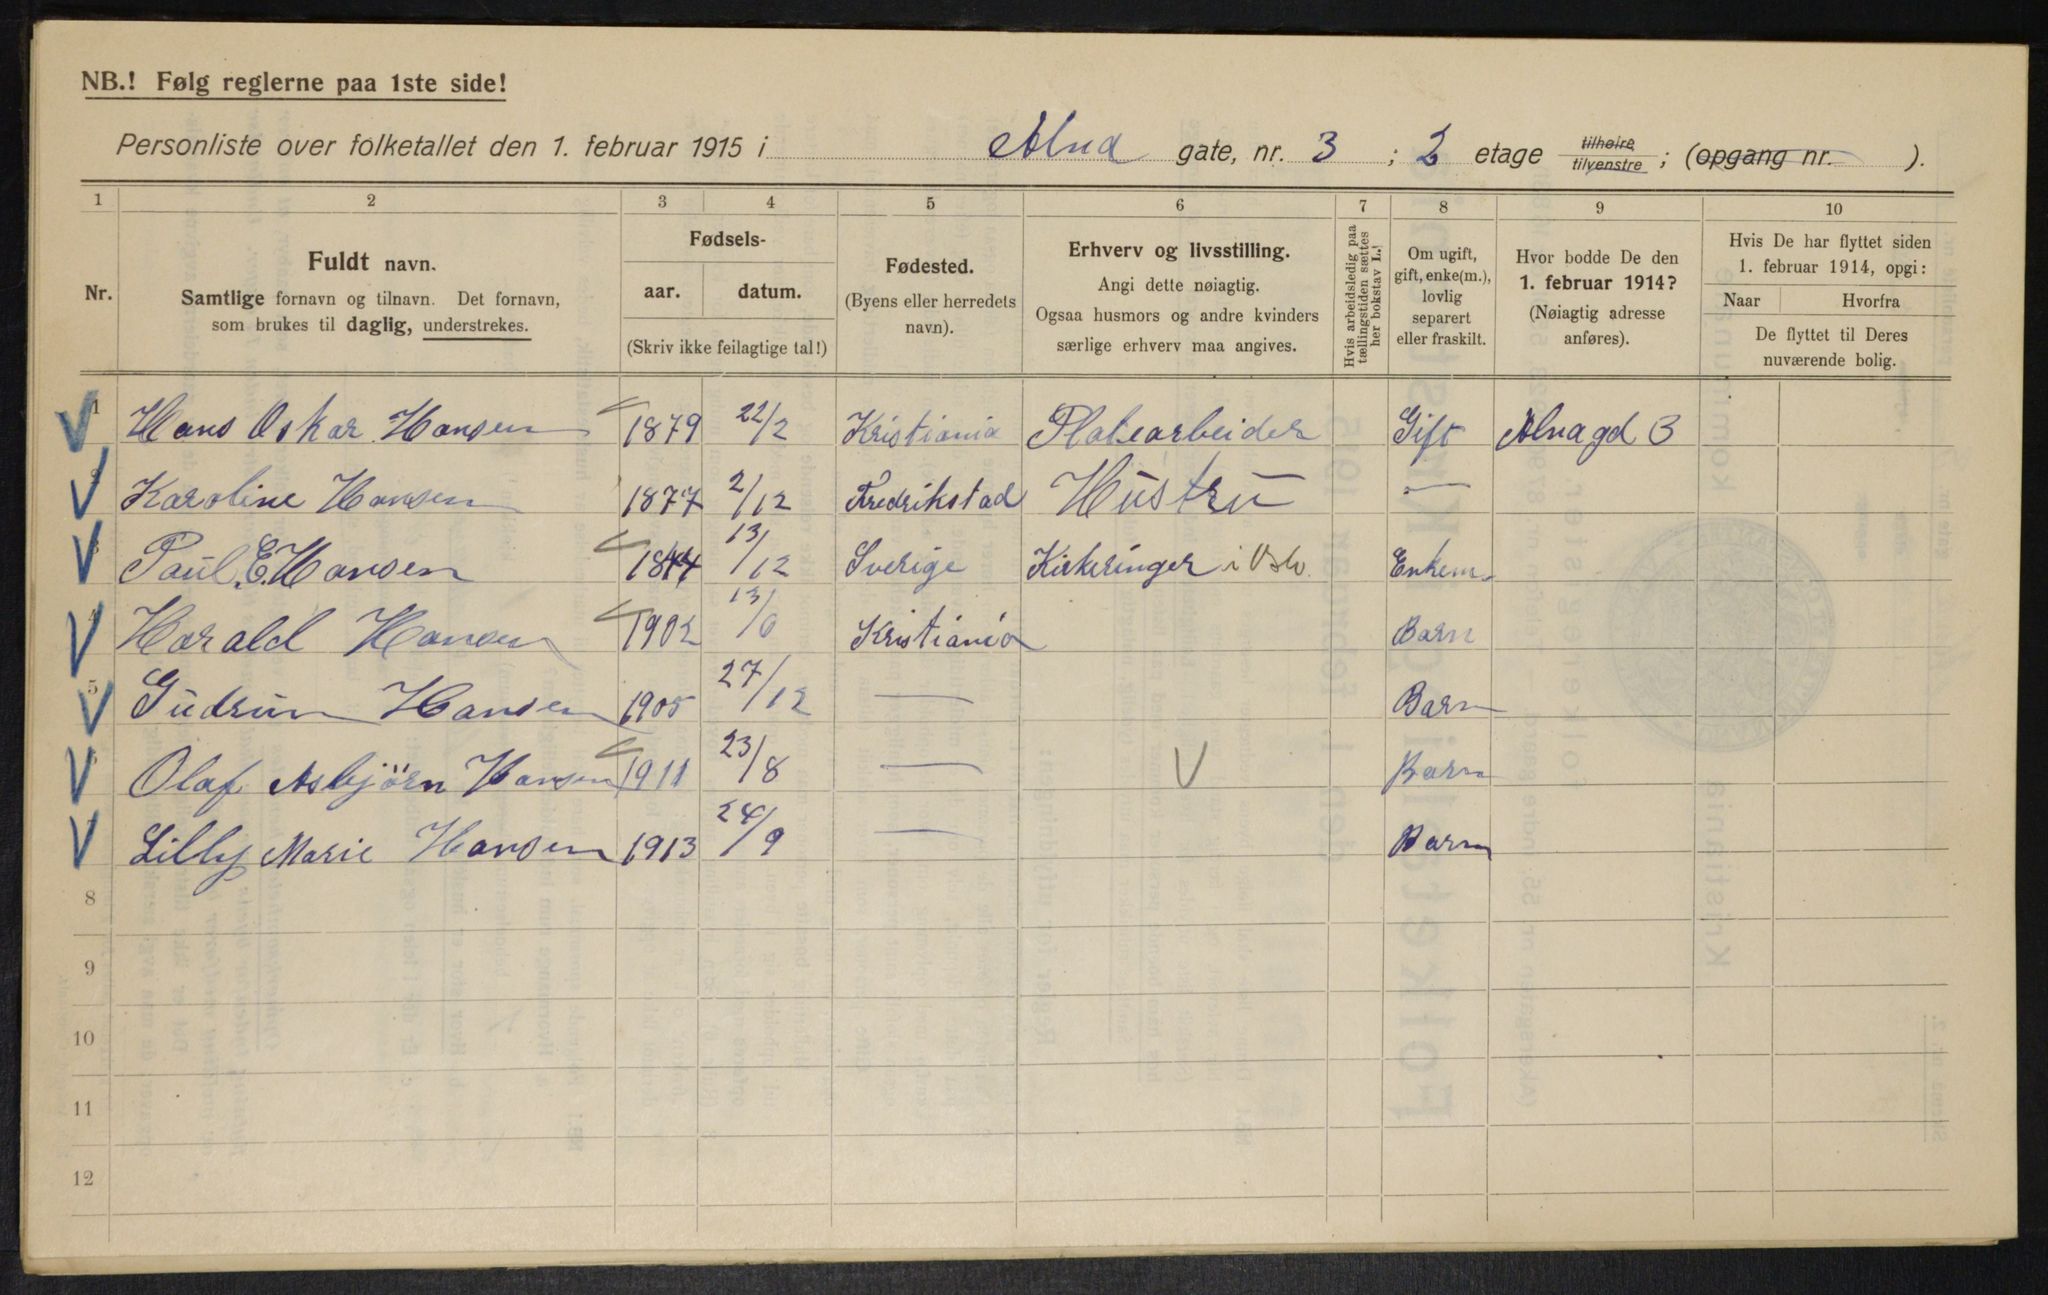 NB.! Følg reglerne paa 1ste side!
Personliste over folketallet den 1. februar 1915 i Alna gate, nr. 3 ; 2 etage tilhøire tilvenstre ; (opgang nr. ).
1 2 3 4 5 6 7 8 9 10
Nr.
Fuldt navn.
Samtlige fornavn og tilnavn. Det fornavn,
som brukes til daglig, understrekes.
Fødsels-
aar. datum.
(Skriv ikke feilagtige tal!)
Fødested.
(Byens eller herredets
navn).
Erhverv og livsstilling.
Angi dette nøiagtig.
Ogsaa husmors og andre kvinders
særlige erhverv maa angives.
Hvis arbeidsledig paa
tællingstiden sættes
her bokstav L.!
Om ugift,
gift, enke(m.),
lovlig
separert
eller fraskilt.
Hvor bodde De den
1. februar 1914?
(Nøiagtig adresse
anføres).
Hvis De har flyttet siden
1. februar 1914, opgi:
Naar Hvorfra
De flyttet til Deres
nuværende bolig.
1 Hans Oskar Hansen 1879 22/2 Kristiania Platearbeider Gift Alnagd 3
2 Karoline Hansen 1877 2/12 Fredrikstad Hustru —
3 Paul E. Hansen 1844 13/12 Sverige Kirkeringer i Oslo. Enkem.
4 Harald Hansen 1902 13/6 Kristiania Barn
5 Gudrun Hansen 1905 27/12 — Barn
6 Olaf Asbjörn Hansen 1911 23/8 — Barn
7 Lilly Marie Hansen 1913 24/9 — Barn
8
9
10
11
12